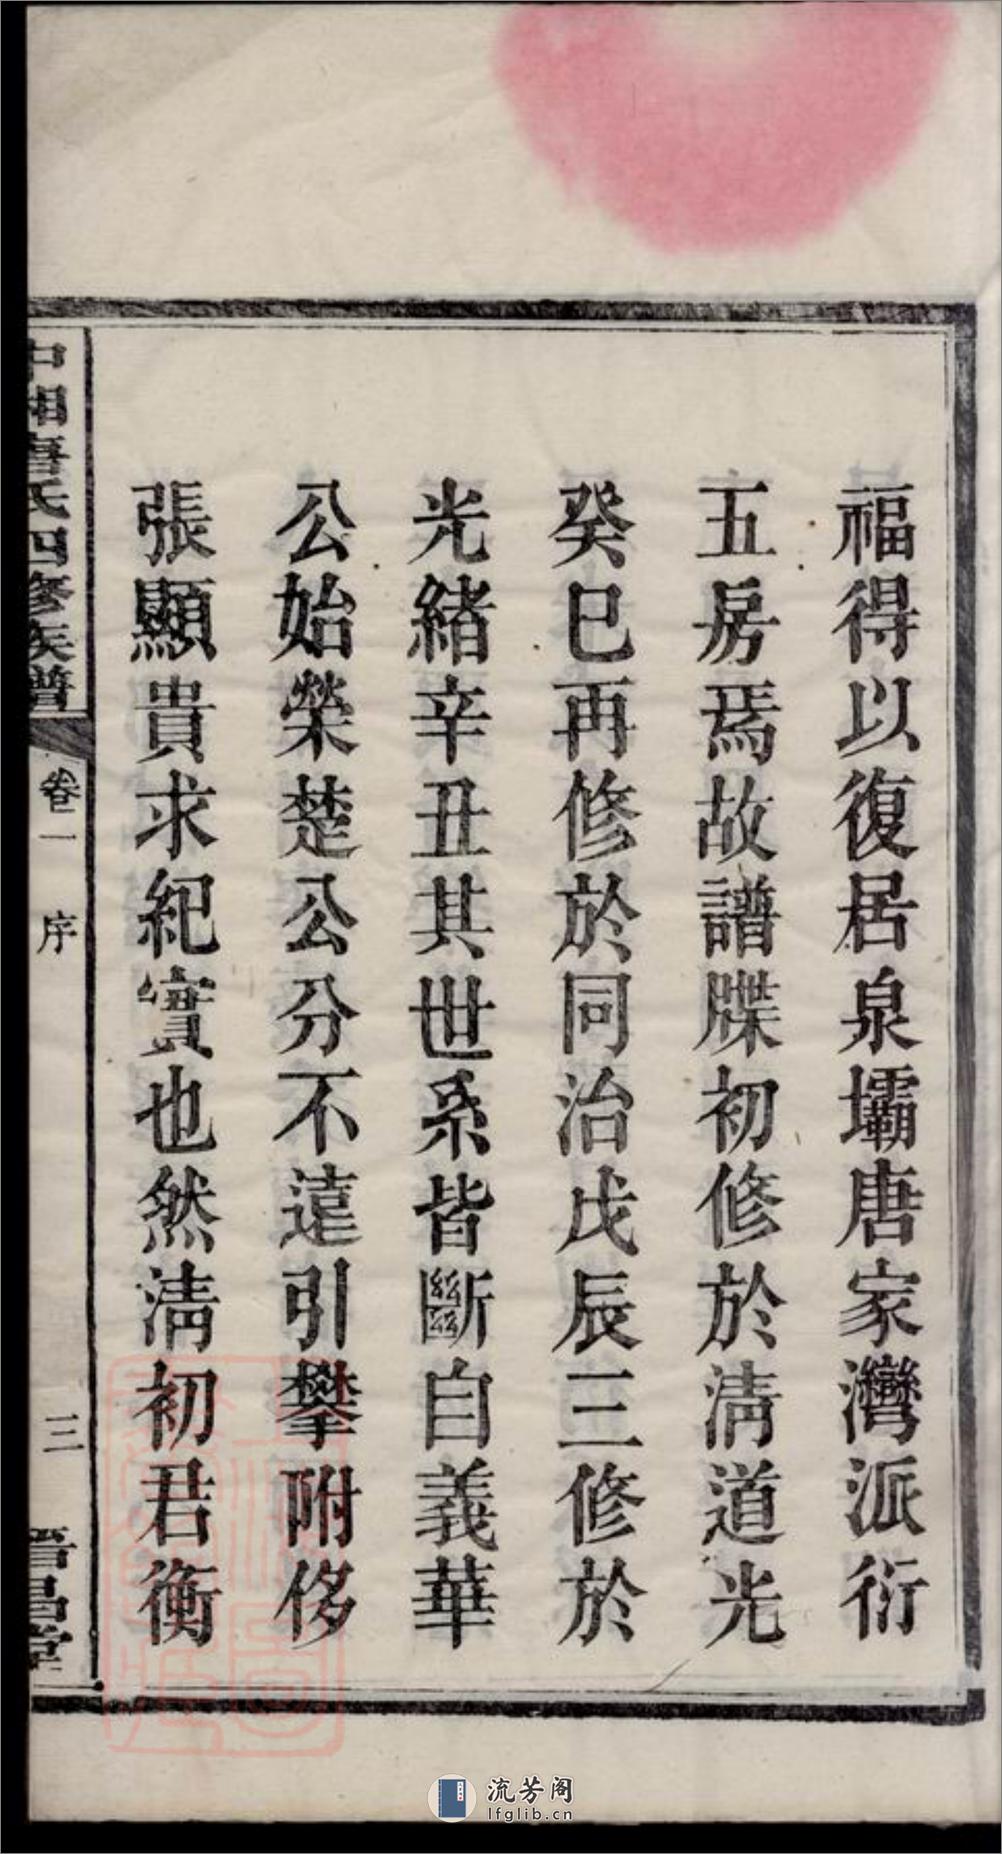 福得以復居泉壩唐家灣派衍
五房焉故譜牒初修於淸道光
癸巳再修於同治戊辰三修於
光緒辛丑其世系皆斷自義華
公始榮楚公分不遠引攀附侈
張顯貴求紀實也然淸初君衡
中湘唐氏四修族譜
卷一 序
三
晉昌堂
流芳阁
lfglib.cn